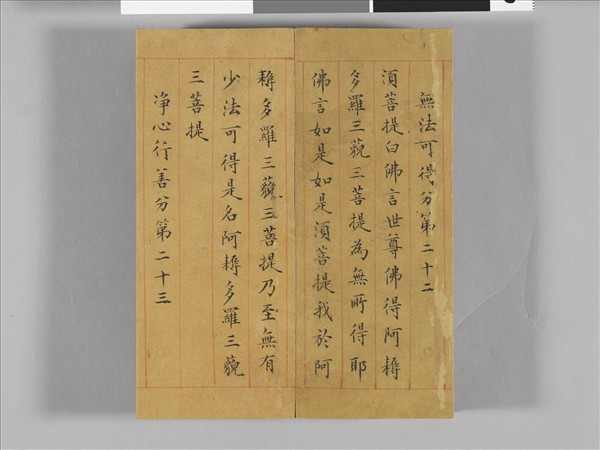 無法可得分第二十二
須菩提白佛言世尊佛得阿耨
多羅三藐三菩提為無所得耶
佛言如是如是須菩提我於阿
耨多羅三藐三菩提乃至無有
少法可得是名阿耨多羅三藐
三菩提
净心行善分第二十三